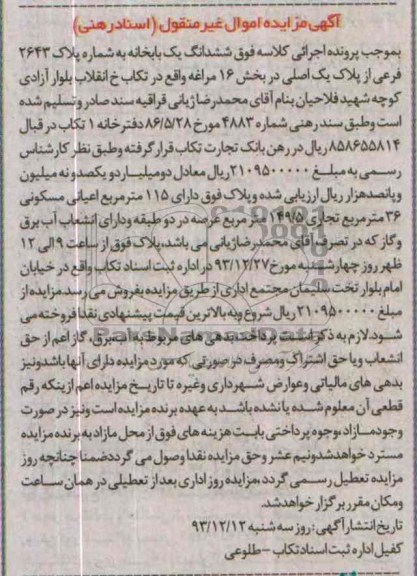 آگهی مزایده اموال غیر منقول (اسنادرهنی)
بموجب پرونده اجرائی کلاسه فوق ششدانگ یک بابخانه به شماره پلاک ۲۶۴۳
فرعی از پلاک یک اصلی در بخش ۱۶ مراغه واقع در تکاب خ انقلاب بلوار آزادی
کوچه شهید فلاحیان بنام آقای محمدرضا ژیانی قراقیه سند صادر و تسلیم شده
است وطبق سند رهنی شماره ۴۸۸۳ مورخ ۸۶/۵/۲۸ دفترخانه ۱ تکاب در قبال
۸۵۸۶۵۵۸۱۴ ریال در رهن بانک تجارت تکاب قرار گرفته وطبق نظر کارشناس
رسمی به مبلغ ۲۱۰۹۵۰۰۰۰۰ ریال معادل دومیلیارد و یکصدو نه میلیون
وپانصدهزار ریال ارزیابی شده وپلاک فوق دارای ۱۱۵ مترمربع اعیانی مسکونی
۳۶ متر مربع تجاری ۱۴۹/۵ متر مربع عرصه در دو طبقه ودارای انشعاب آب برق
وگاز که در تصرف آقای محمدرضاژیانی می باشد،پلاک فوق از ساعت ۹ الی ۱۲
ظهر روز چهارشنبه مورخ ۹۳/۱۲/۲۷ در اداره ثبت اسناد تکاب واقع در خیابان
امام بلوار تخت سلیمان مجتمع اداری از طریق مزایده بفروش می رسد.مزایده از
مبلغ ۲۱۰۹۵۰۰۰۰۰ ریال شروع وبه بالاترین قیمت پیشنهادی نقدا فروخته می
شود.لازم به ذکر است پرداخت بدهی های مربوط به آب،برق، گاز اعم از حق
انشعاب ویا حق اشتراک ومصرف در صورتی که مورد مزایده دارای آنها باشد ونیز
بدهی های مالیاتی وعوارض شهرداری وغیره تا تاریخ مزایده اعم از ینکه رقم
قطعی آن معلوم شده یا نشده باشد به عهده برنده مزایده است ونیز در صورت
وجودمازاد،وجوه پرداختی بابت هزینه های فوق از محل مازاد به برنده مزایده
مسترد خواهدشدونیم عشر وحق مزایده نقدا وصول می گردد ضمنا چنانچه روز
مزایده تعطیل رسمی گردد،مزایده روز اداری بعد از تعطیلی در همان ساعت
ومکان مقرر برگزار خواهدشد.
تاریخ انتشار آگهی : روز سه شنبه ۹۳/۱۲/۱۲
کفیل اداره ثبت اسنادتکاب - طلوعی